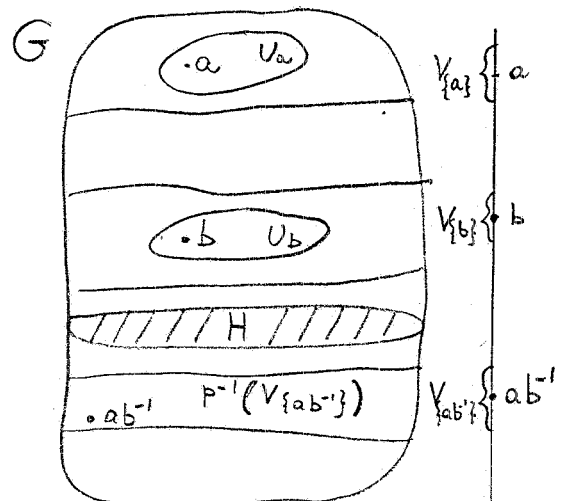 G
.a Ua V{a} { a
.b Ub V{b} { b
H
.ab⁻¹ p⁻¹(V{ab⁻¹}) V{ab⁻¹} { ab⁻¹